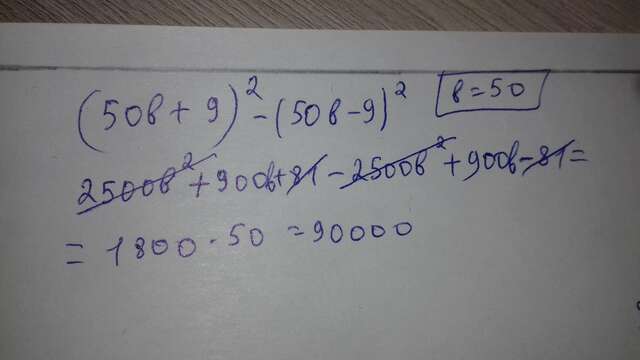 (50b + 9)² - (50b - 9)² b = 50
2500b² + 900b + 81 - 2500b² + 900b - 81 =
= 1800 · 50 = 90000